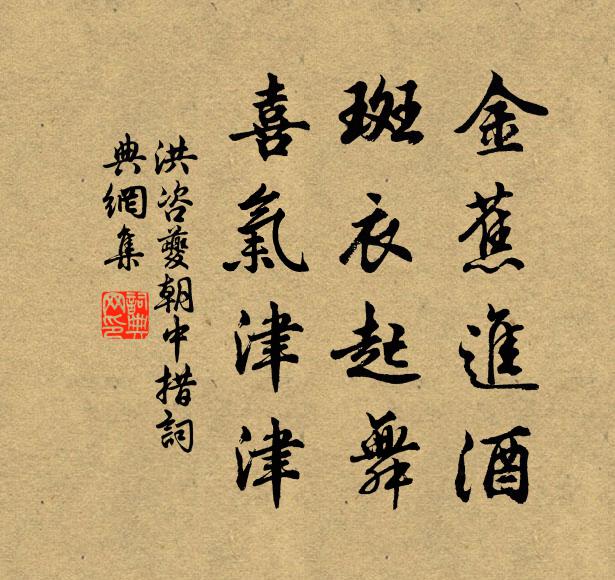 金蕉進酒
斑衣起舞
喜氣津津
洪咨夔朝中措詞
典網集
詞典
网印